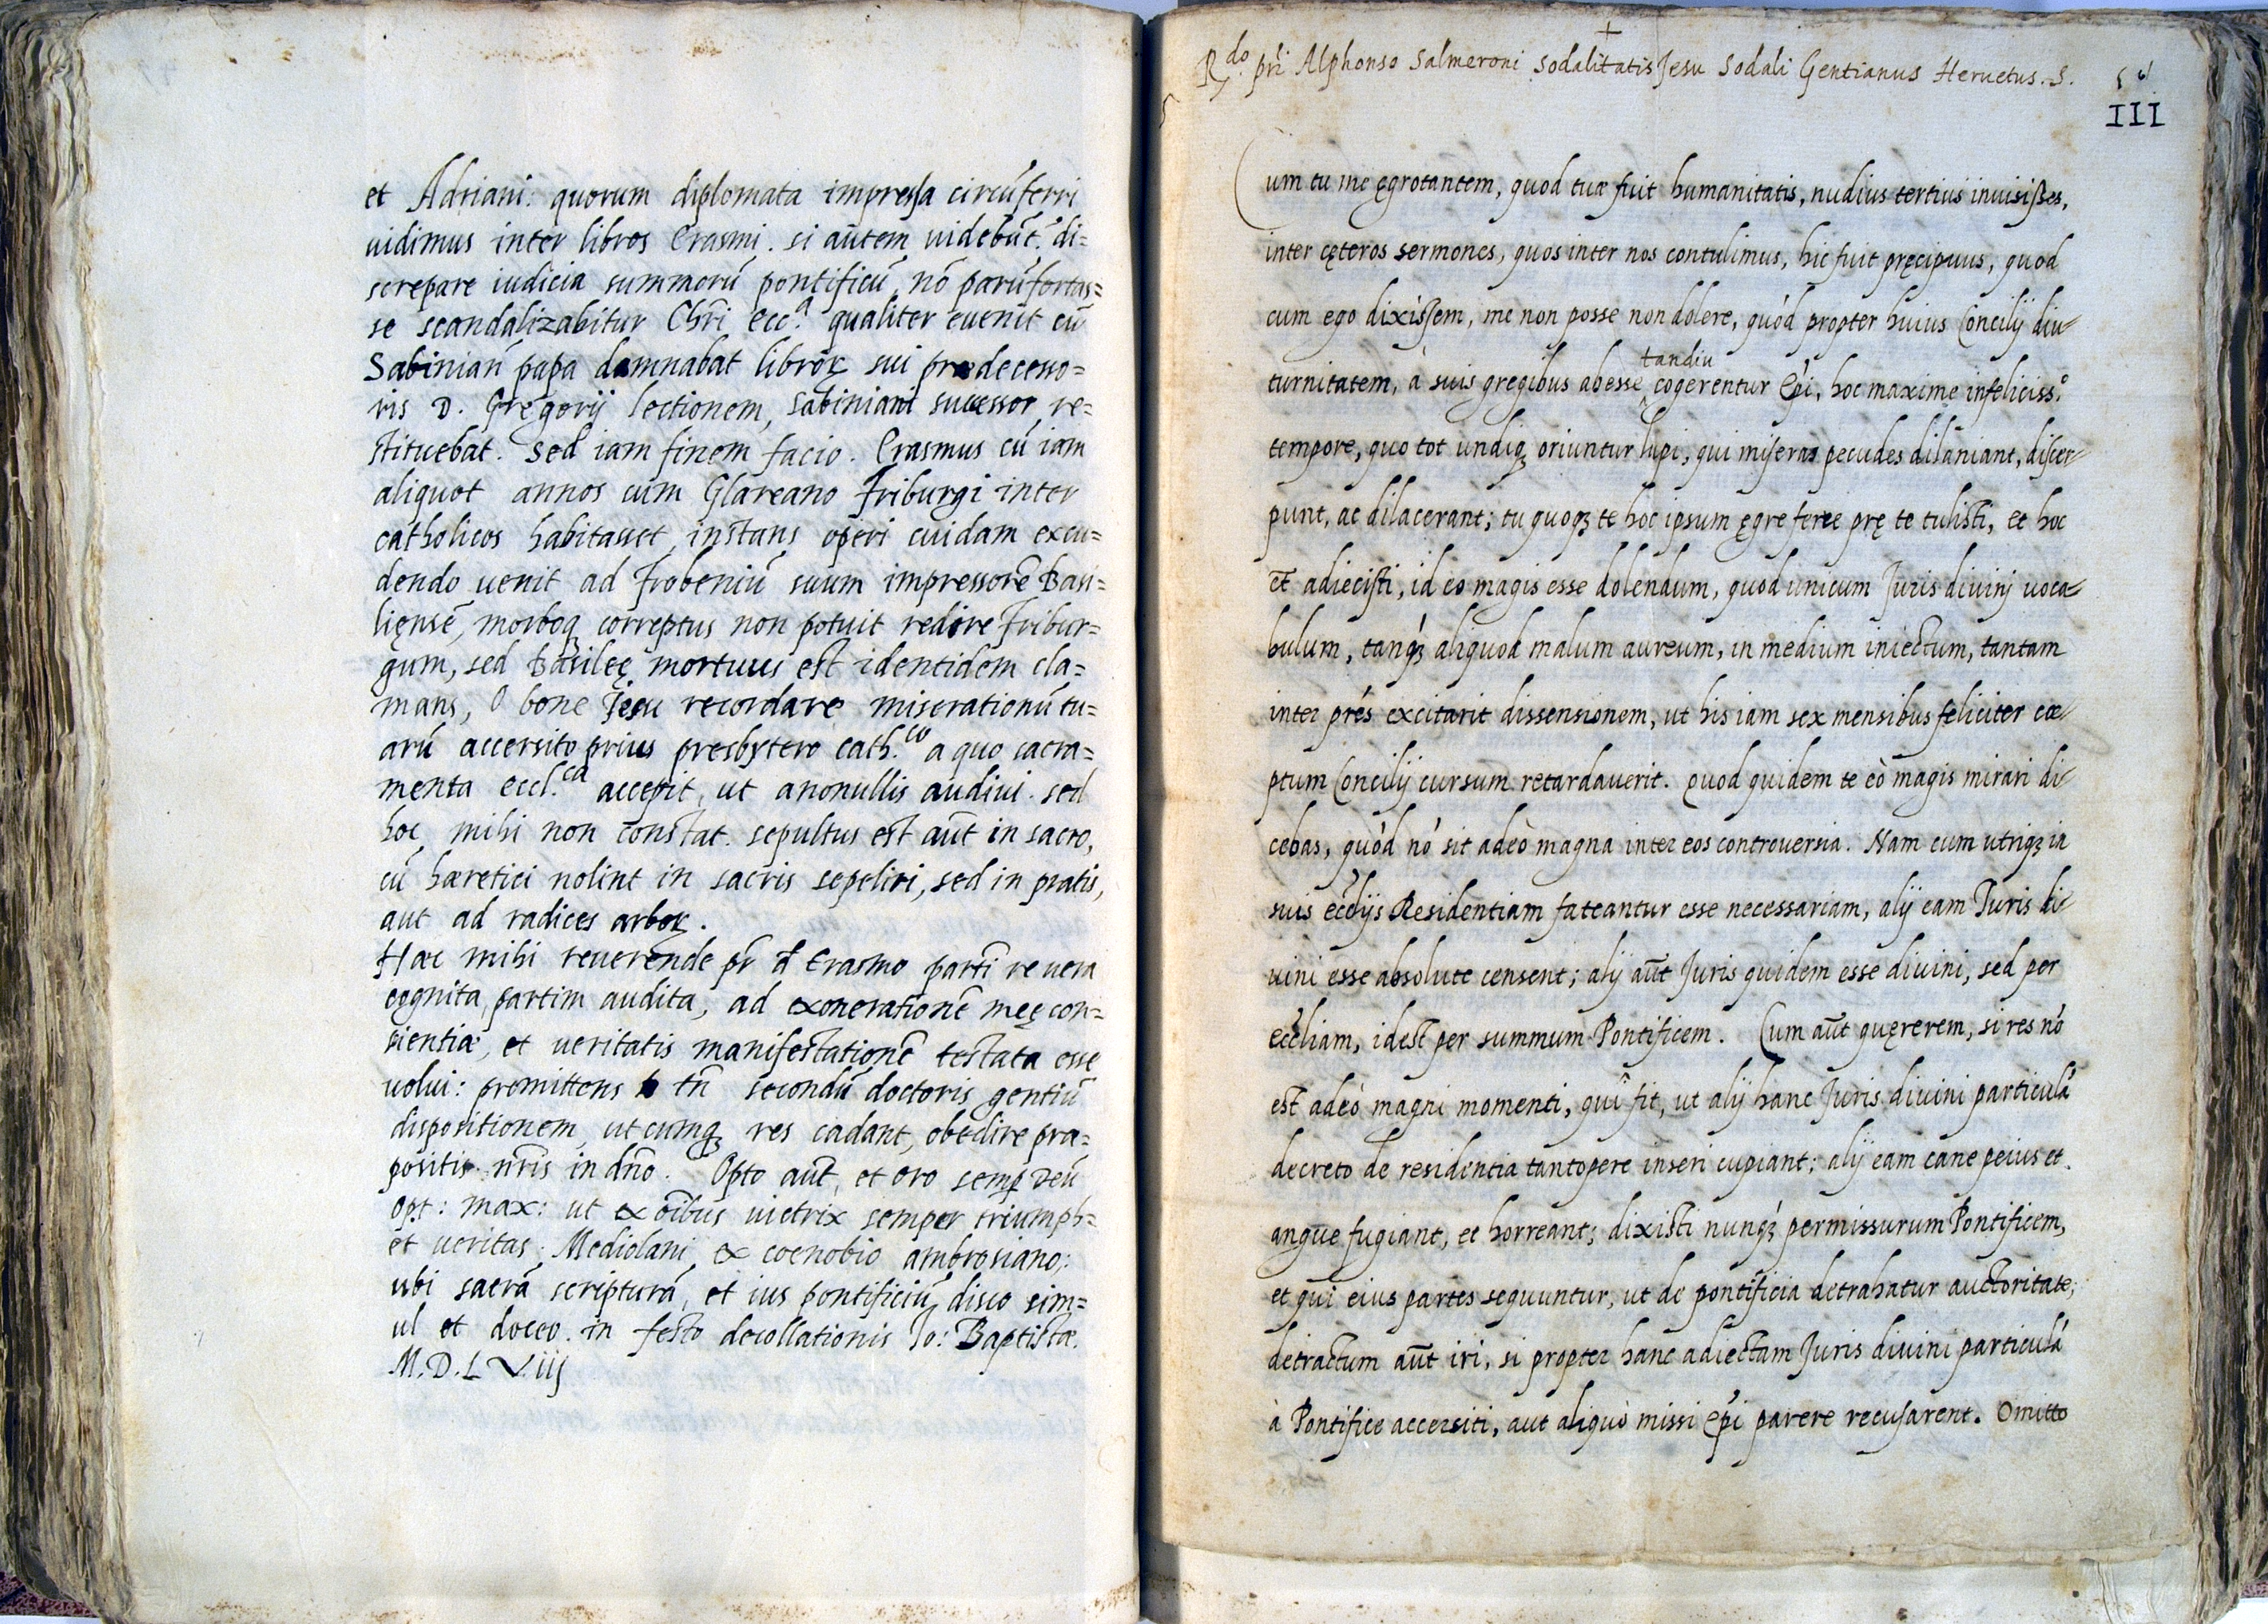 et Adriani: quorum diplomata impressa circūferri
uidimus inter libros Erasmi. si aūtem uidebūt. di=
screpare iudicia summorū pontificū, nō parū fortas=
se scandalizabitur Chrī ecc.a qualiter euenit cū
Sabinian̄ papa damnabat librorꝝ sui prædecesso=
ris D. Gregorij lectionem, Sabiniani successor re=
stituebat. Sed iam finem facio. Erasmus cū iam
aliquot annos cum Glareano Friburgi inter
catholicos habitasset, instans operi cuidam excu=
dendo uenit ad Frobeniū suum impressorē Basi=
liēnsē, morboqꝫ correptus non potuit redire Fribur=
gum, sed Basileę mortuus est identidem cla=
mans, O bone Jesu recordare miserationū tu=
arū accersito prius presbytero cath.co a quo sacra=
menta eccl.ca accepit, ut anonullis audiui. sed
hoc mihi non constat. sepultus est aūt in sacro,
cū hæretici nolint in sacris sepeliri, sed in pratis,
aut ad radices arborꝝ.
Hæc mihi reuerende pr̄ đ Erasmo partī re uera
cognita, partim audita, ad exonerationē męę con=
scientiæ, et ueritatis manifestationē testata esse
uolui: promittens tn̄ secondū doctoris gentiū
dispositionem, ut cumqꝫ res cadant, obedire præ=
positis nr̄is in dn̄o. Opto aūt, et oro semp̱ Deū
opt: max: ut ex oībus uictrix semper triumph=
et ueritas. Mediolani ex coenobio ambrosiano:
ubi sacrā scripturā, et ius pontificiū disco sim=
ul et doceo. in festo decollationis Jo: Baptistæ.
M.D.L.Viij
+
R.do pr̄i Alphonso Salmeroni sodalitatis Jesu Sodali Gentianus Heruetus. S.
III
Cum tu me ęgrotantem, quod tuæ fuit humanitatis, nudius tertius inuisisses,
inter cęteros sermones, quos inter nos contulimus, hic fuit pręcipuus, quod
cum ego dixissem, me non posse non dolere, quòd propter huius Concilij diu-
turnitatem, à suis gregibus abesse ^tandiu cogerentur Ep̄i, hoc maxime infeliciss.o
tempore, quo tot undiqꝫ oriuntur lupi, qui miseras pecudes dilaniant, discer-
punt, ac dilacerant; tu quoqꝫ te hoc ipsum ęgre ferre prę te tulisti, et hoc
et adiecisti, id eo magis esse dolendum, quod unicum Juris diuinj uoca-
bulum, tanqꝫ aliquod malum aureum, in medium iniectum, tantam
inter pr̄es excitarit dissensionem, ut his iam sex mensibus feliciter cœ-
ptum Concilij cursum retardauerit. Quod quidem te eò magis mirari di-
cebas, quòd nō sit adeò magna inter eos controuersia. Nam cum utriqꝫ in
suis eccl̄ijs Residentiam fateantur esse necessariam, alij eam Juris di-
uini esse absolute censent; alij aūt Juris quidem esse diuini, sed per
eccl̄iam, idest per summum Pontificem. Cum aūt quęrerem, si res nō
est adeò magni momenti, quî fit, ut alij hanc Juris diuini particulā
decreto de residentia tantopere inseri cupiant; alij eam cane peius et
angue fugiant, et horreant; dixisti nunqꝫ permissurum Pontificem,
et qui eius partes sequuntur, ut de pontificia detrahatur auctoritate;
detractum aūt iri, si propter hanc adiectam Juris diuini particulā
à Pontifice accersiti, aut aliquò missi ep̄i parere recusarent. Omitto